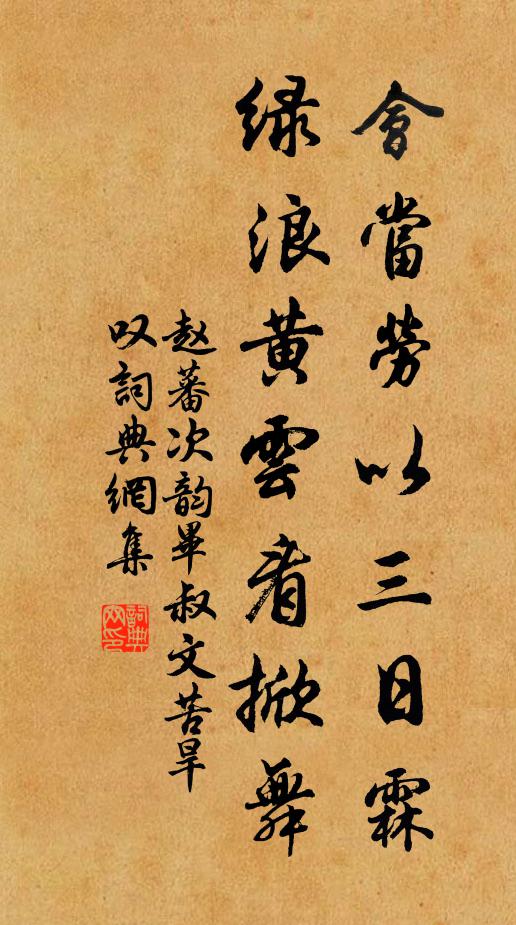 會當勞以三日霖
綠浪黃雲看掀舞
赵蕃次韵畢叔文苦旱
叹詞典網集
詞典
网印